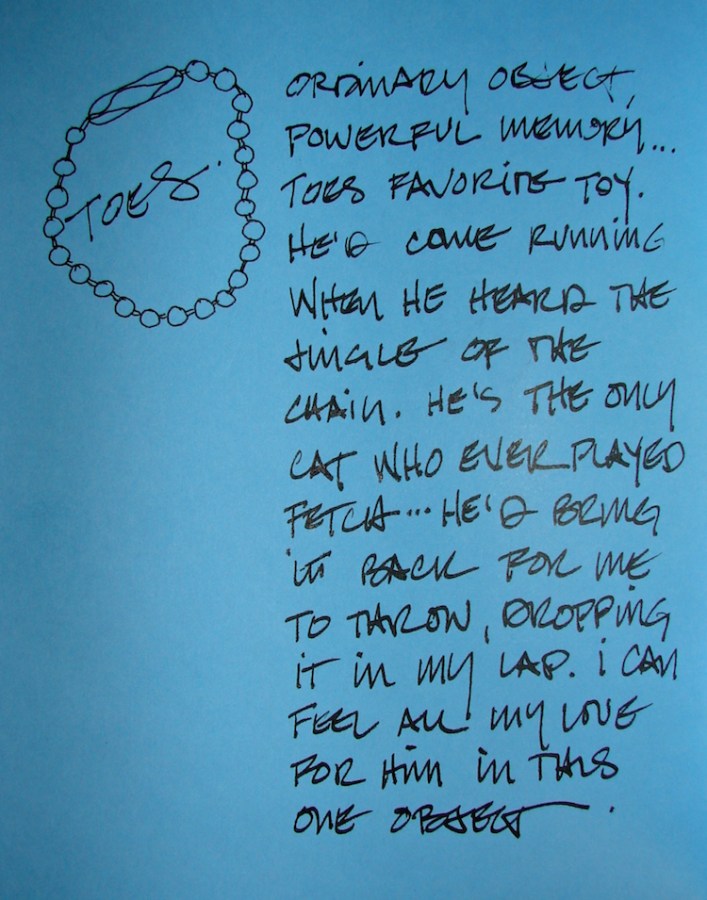 TOES.
ORDINARY OBJECT,
POWERFUL MEMORY...
TOES FAVORITE TOY.
HE'D COME RUNNING
WHEN HE HEARD THE
JINGLE OF THE
CHAIN. HE'S THE ONLY
CAT WHO EVER PLAYED
FETCH... HE'D BRING
IT BACK FOR ME
TO THROW, DROPPING
IT IN MY LAP. I CAN
FEEL ALL MY LOVE
FOR HIM IN THIS
ONE OBJECT.